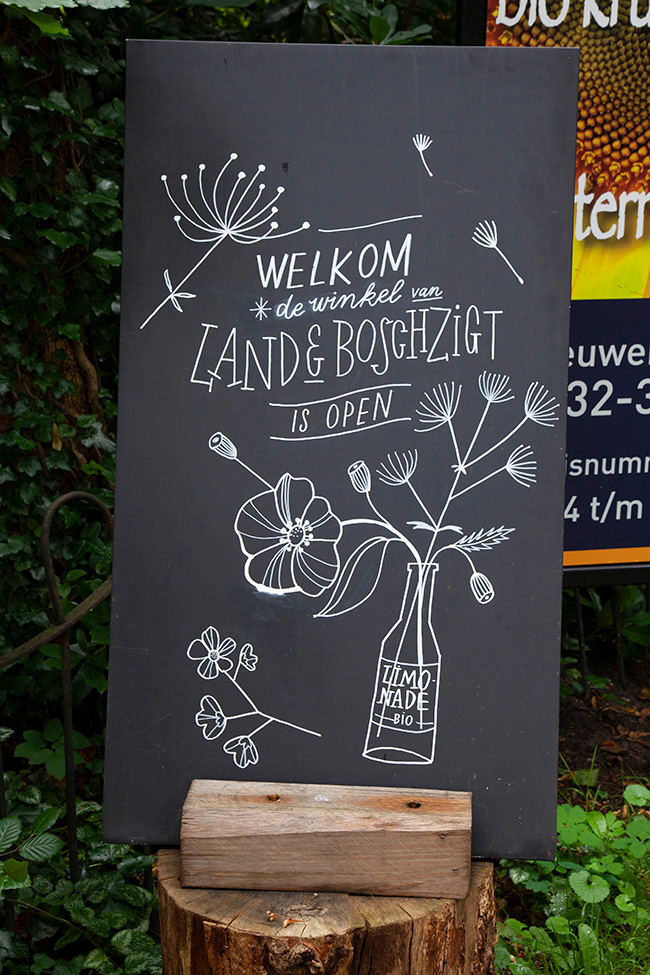 WELKOM
* de winkel van
LAND & BOSCHZiGT
IS OPEN
LIMO-
NADE
BIO
bio kru
tern
euwe
32-3
isnumm
4 t/m